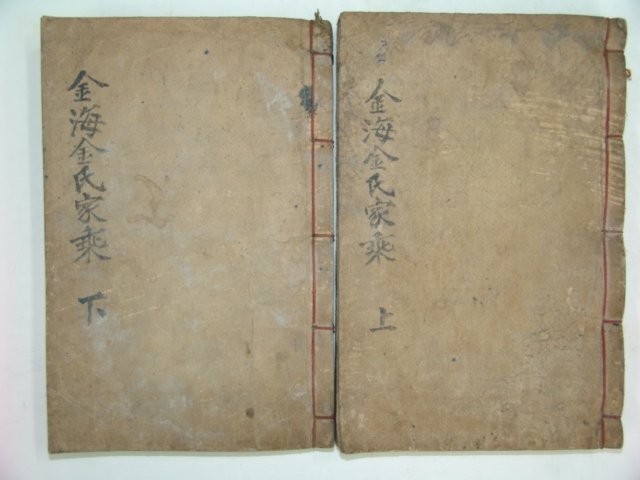 金海金氏家乘 上
金海金氏家乘 下